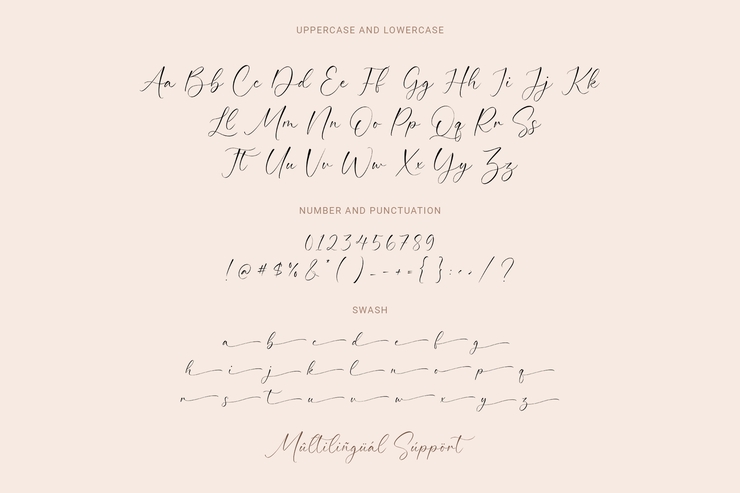 UPPERCASE AND LOWERCASE
Aa Bb Cc Dd Ee Ff Gg Hh Ii Jj Kk
Ll Mm Nn Oo Pp Qq Rr Ss
Tt Uu Vv Ww Xx Yy Zz
NUMBER AND PUNCTUATION
0123456789
! @ # $ % & * ( ) _ - + = { } : ; , . / ?
SWASH
a b c d e f g
h i j k l n o p q
r s t u v w x y z
Múltilingüál Súppört